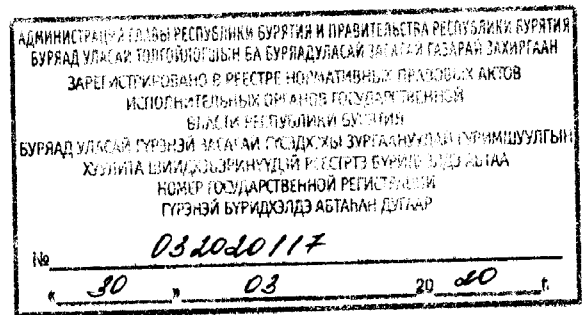 АДМИНИСТРАЦИЯ ГЛАВЫ РЕСПУБЛИКИ БУРЯТИЯ И ПРАВИТЕЛЬСТВА РЕСПУБЛИКИ БУРЯТИЯ
БУРЯАД УЛАСАЙ ТОЛГОЙЛОГШЫН БА БУРЯАД УЛАСАЙ ЗАСАГАЙ ГАЗАРАЙ ЗАХИРГААН
ЗАРЕГИСТРИРОВАНО В РЕЕСТРЕ НОРМАТИВНЫХ ПРАВОВЫХ АКТОВ
ИСПОЛНИТЕЛЬНЫХ ОРГАНОВ ГОСУДАРСТВЕННОЙ
ВЛАСТИ РЕСПУБЛИКИ БУРЯТИЯ
БУРЯАД УЛАСАЙ ГҮРЭНЭЙ ЗАСАГАЙ ГҮЙСЭДХЭХЫ ЗУРГААНУУДАЙ ГУРИМШУУЛГЫН
ХУУЛИТА РЕЕСТРТЭ АБТАА
НОМЕР ГОСУДАРСТВЕННОЙ РЕГИСТРАЦИИ
ГҮРЭНЭЙ БҮРИДХЭЛДЭ АБТАҺАН ДУГААР
№ 032020117
« 30 » 03 20 20 г.